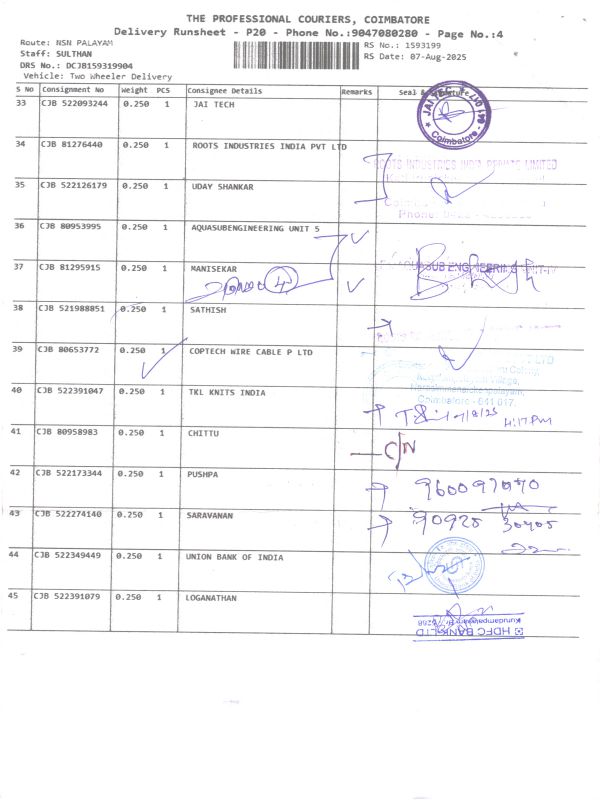 THE PROFESSIONAL COURIERS, COIMBATORE
Delivery Runsheet - P20 - Phone No.:9047080280 - Page No.:4
Route: NSN PALAYAM
RS No.: 1593199
Staff: SULTHAN
RS Date: 07-Aug-2025
DRS No.: DCJB159319904
Vehicle: Two Wheeler Delivery
S No Consignment No Weight PCS Consignee Details Remarks Seal & Signature
33 CJB 522093244 0.250 1 JAI TECH
Coimbatore
34 CJB 81276440 0.250 1 ROOTS INDUSTRIES INDIA PVT LTD
ROOTS INDUSTRIES INDIA PRIVATE LIMITED
35 CJB 522126179 0.250 1 UDAY SHANKAR
Phone:
36 CJB 80953995 0.250 1 AQUASUBENGINEERING UNIT 5
37 CJB 81295915 0.250 1 MANISEKAR
AQUASUB ENGINEERING UNIT-IV
4
38 CJB 521988851 0.250 1 SATHISH
39 CJB 80653772 0.250 1 COPTECH WIRE CABLE P LTD
LTD
Coimbatore - 641 017.
40 CJB 522391047 0.250 1 TKL KNITS INDIA
4:17 PM
41 CJB 80958983 0.250 1 CHITTU
C/N
42 CJB 522173344 0.250 1 PUSHPA
43 CJB 522274140 0.250 1 SARAVANAN
90925 30405
44 CJB 522349449 0.250 1 UNION BANK OF INDIA
45 CJB 522391079 0.250 1 LOGANATHAN
HDFC BANK LTD